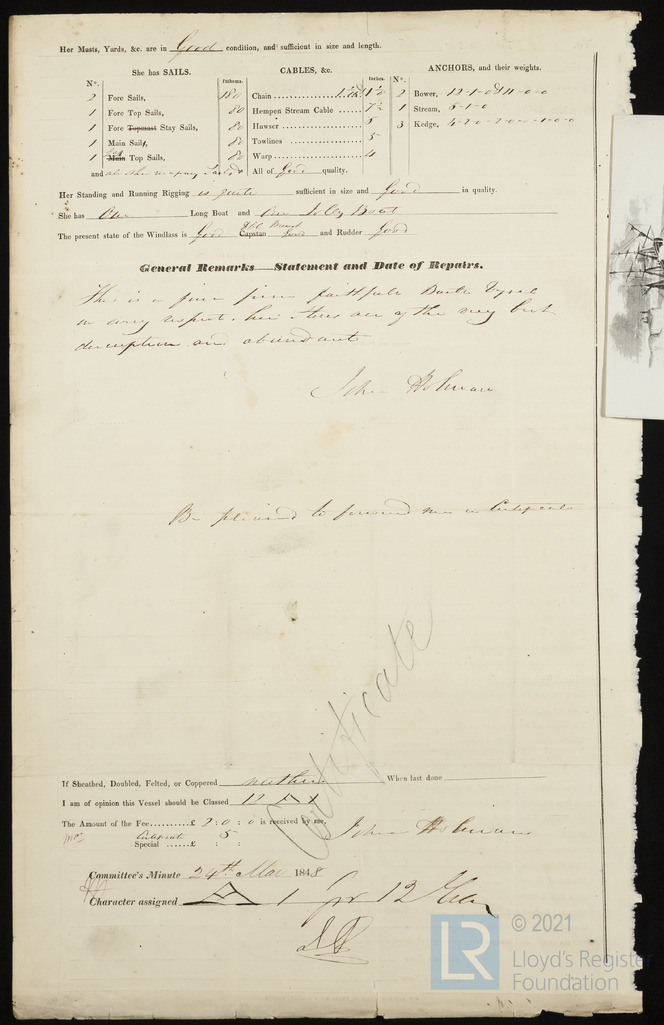 Her Masts, Yards, &c. are in Good condition, and sufficient in size and length.
She has SAILS.
CABLES, &c.
ANCHORS, and their weights.
N°.
Fathoms.
Inches.
N°.
2 Fore Sails,
180
Chain
1
2 Bower, 12-1-0 & 11-0-0
1 Fore Top Sails,
80
Hempen Stream Cable
7½
1 Stream, 5-1-0
1 Fore Topmast Stay Sails,
80
Hawser
5
3 Kedge, 4-2-0 2-0-0 1-0-0
1 Main Sails,
80
Towlines
5
1 Main Top Sails,
80
Warp
4
and all other necessary Sails
All of Good quality.
Her Standing and Running Rigging is quite sufficient in size and Good in quality.
She has One Long Boat and One Jolly Boat
The present state of the Windlass is Good Capstan Good and Rudder Good
General Remarks—Statement and Date of Repairs.
This is a fine firm faithfully Built Vessel
in every respect. her Stores are of the very best
description and abundant
John Holman
Be pleased to forward me a Certificate
Certificate
If Sheathed, Doubled, Felted, or Coppered neither When last done
I am of opinion this Vessel should be Classed 12 A 1
The Amount of the Fee..........£ 2:0:0 is received by me,
Certificate 5
John Holman
Special ......£ : :
Committee's Minute 24th Mar 1848
Character assigned A 1 for 12 Years
© 2021
LR
Lloyd's Register
Foundation